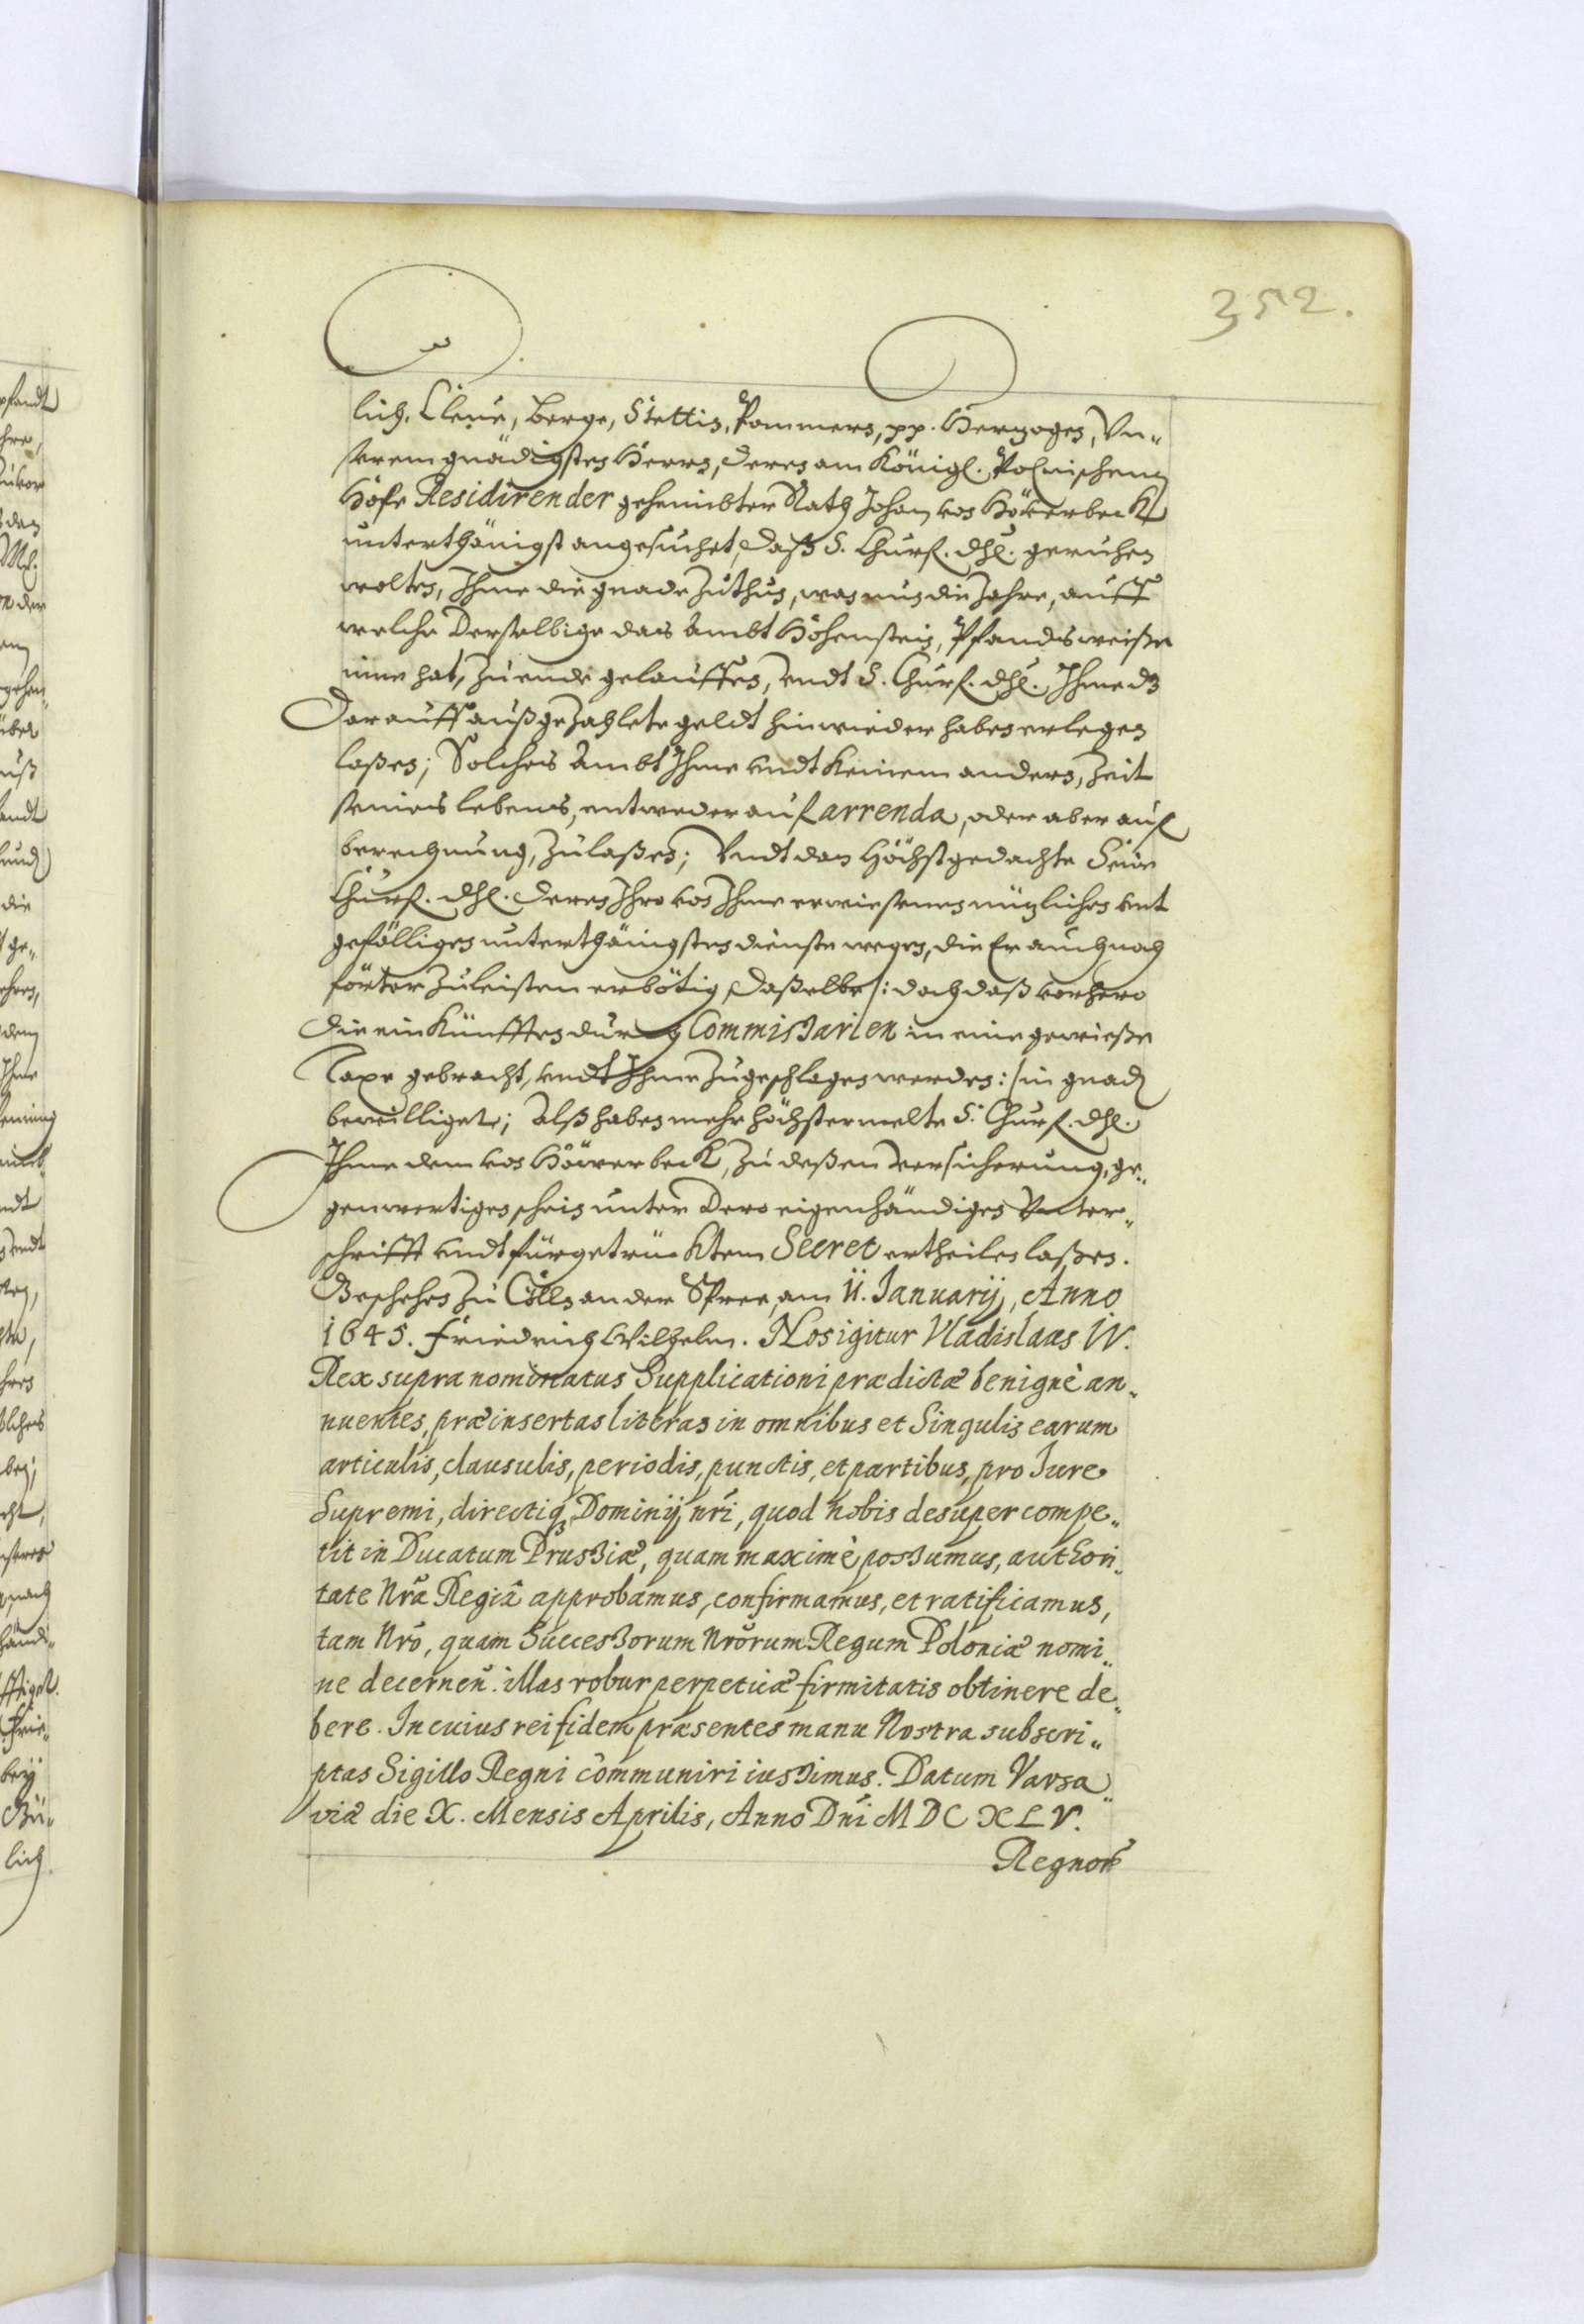 352.
lich, Cleue, Berge, Stettin, Pommern, pp. Hertzogen, Vn„
serem gnädigsten Herrn, deren am Königl. Polnischenn
Hofe Residirender geheimbter Rath Johan von Höverbeck
unterthänigst angesuchet, daß S. Churf. dhl. geruhen
wolten, Ihme die gnade zuthun, wan nun die Jahre, auff
welche Derselbige das Ambt Hohenstein, Pfandsweiße
inne hat, zu ende gelauffen, vndt S. Churf. dhl. Ihme dz
darauff außgezahlete geldt hinwieder haben erlegen
laßen; Solches Ambt Ihme vndt keinem andern, Zeit
seines lebens, entweder auf arrenda, oder aber auf
berechnung, zulaßen; Vndt dan Höchstgedachte Seine
Churf. dhl. deren Ihro von Ihme erwiesenen nützlichen vnt
gefälligen unterthänigsten dienste wegen, die Er auch nach
förter zuleisten erbötig, daßelbe /: doch daß vorhero
die einkünfften durch Commissarien in eine gewieße
Taxe gebracht, vndt Ihme zugeschlagen werden :/ in gnad
bewilliget; Alß haben mehr höchstermelte S. Churf. dhl.
Ihme dem von Höverbeck, zu deßen versicherung, ge„
genwertigen schein unter Dero eigenhändigen Vnter„
schrifft vndt fürgetrücktem Secret ertheilen laßen.
Geschehen zu Cölln an der Spree, am 11. Januarij, Anno
1645. Friedrich Wilhelm. Nos igitur Vladislaus IV.
Rex supranominatus Supplicationi prædictæ benignè an„
nuentes, præinsertas literas in omnibus et Singulis earum
articulis, clausulis, periodis, punctis, et partibus, pro Jure
Supremi, directiq3 Dominij nri, quod nobis desuper compe„
tit in Ducatum Prussiæ, quam maximè possumus, authori„
tate Nrâ Regiâ approbamus, confirmamus, et ratificamus,
tam Nro, quam Successorum Nrorum Regum Poloniæ nomi„
ne decernen. illas robur perpetuæ firmitatis obtinere de„
bere. In cuius rei fidem præsentes manu Nostra subscri„
ptas Sigillo Regni communiri iussimus. Datum Varsa„
viæ die X. Mensis Aprilis, Anno Dni MDCXLV.
Regnor